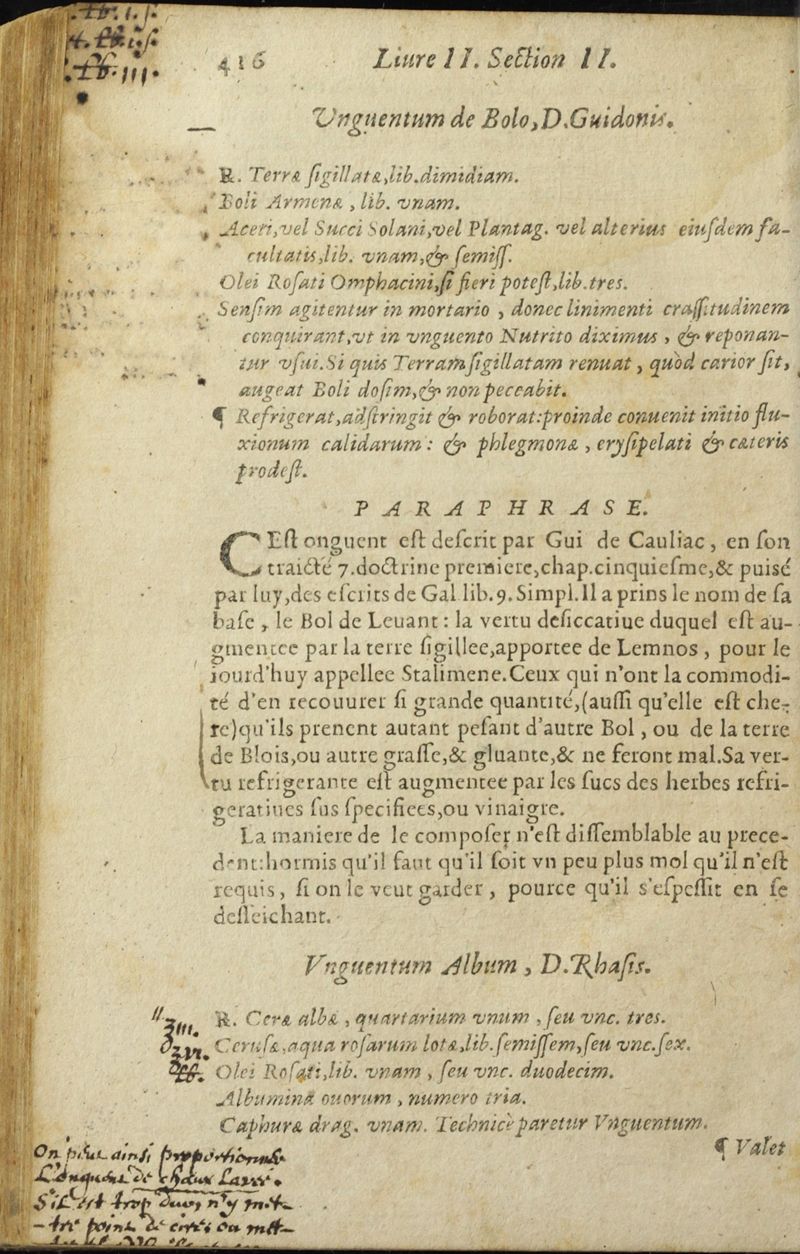 416 Liure II. Section II.
Vnguentum de Bolo, D. Guidonis.
℞. Terræ ſigillatæ, lib. dimidiam.
Boli Armenæ, lib. vnam.
Aceti, vel Succi Solani, vel Plantag. vel alterius eiuſdem fa-
cultatis, lib. vnam, & ſemiſſ.
Olei Roſati Omphacini, ſi fieri poteſt, lib. tres.
Senſim agitentur in mortario, donec linimenti craſſitudinem
conquirant, vt in vnguento Nutrito diximus, & reponan-
tur vſui. Si quis Terram ſigillatam renuat, quòd carior ſit,
augeat Boli doſim, & non peccabit.
¶ Refrigerat, adſtringit & roborat: proinde conuenit initio flu-
xionum calidarum: & phlegmonæ, eryſipelati & cæteris
prodeſt.
PARAPHRASE.
CEſt onguent eſt deſcrit par Gui de Cauliac, en ſon
traicté 7. doctrine premiere, chap. cinquieſme, & puisé
par luy, des eſcrits de Gal. lib. 9. Simpl. Il a prins le nom de ſa
baſe, le Bol de Leuant: la vertu deſiccatiue duquel eſt au-
gmentee par la terre ſigillee, apportee de Lemnos, pour le
iourd'huy appellee Stalimene. Ceux qui n'ont la commodi-
té d'en recouurer ſi grande quantité, (auſſi qu'elle eſt che-
re) qu'ils prenent autant peſant d'autre Bol, ou de la terre
de Blois, ou autre graſſe, & gluante, & ne feront mal. Sa ver-
tu refrigerante eſt augmentee par les ſucs des herbes refri-
geratiues ſus ſpecifiees, ou vinaigre.
La maniere de le compoſer n'eſt diſſemblable au prece-
dent: hormis qu'il faut qu'il ſoit vn peu plus mol qu'il n'eſt
requis, ſi on le veut garder, pource qu'il s'eſpeſſit en ſe
deſſeichant.
Vnguentum Album, D. Rhaſis.
℞. Ceræ albæ, quartarium vnum, ſeu vnc. tres.
Ceruſæ, aqua roſarum lotæ, lib. ſemiſſem, ſeu vnc. ſex.
Olei Roſati, lib. vnam, ſeu vnc. duodecim.
Albumina ouorum, numero tria.
Caphuræ drag. vnam. Technicè paretur Vnguentum.
¶ Valet
On peut ainsi proportionner
L'onguent de chaux Lavee.
S'il est trop dur, n'y met-
tre point de cire ou met-